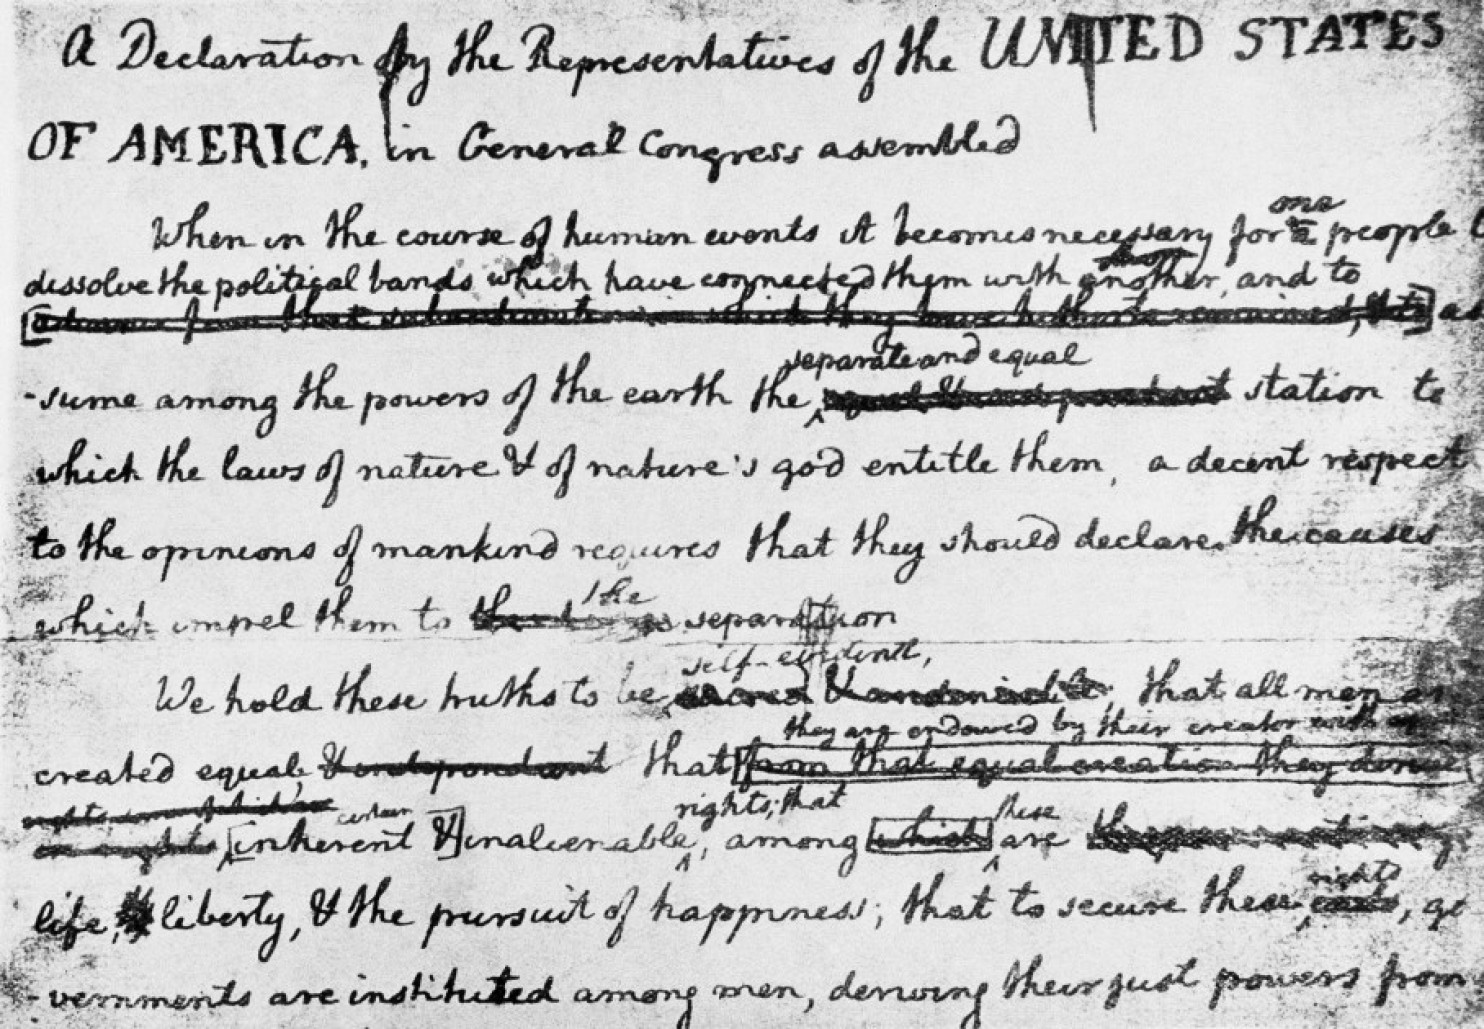 A Declaration by the Representatives of the UNITED STATES
OF AMERICA, in General Congress assembled
one
When in the course of human events it becomes necessary for a people
dissolve the political bands which have connected them with another, and to
advance from that subordination in which they have hitherto remained, & to as
separate and equal
-sume among the powers of the earth the equal & independant station to
which the laws of nature & of nature's god entitle them, a decent respect
to the opinions of mankind requires that they should declare the causes
the
which impel them to separation
self-evident,
We hold these truths to be sacred & undeniable, that all men ar
they are endowed by their creator with
created equal & independant that from that equal creation they derive
rights; that
certain
these
[inherent &] inalienable, among which are
rights
life, liberty, & the pursuit of happiness; that to secure these ends, go
-vernments are instituted among men, deriving their just powers from